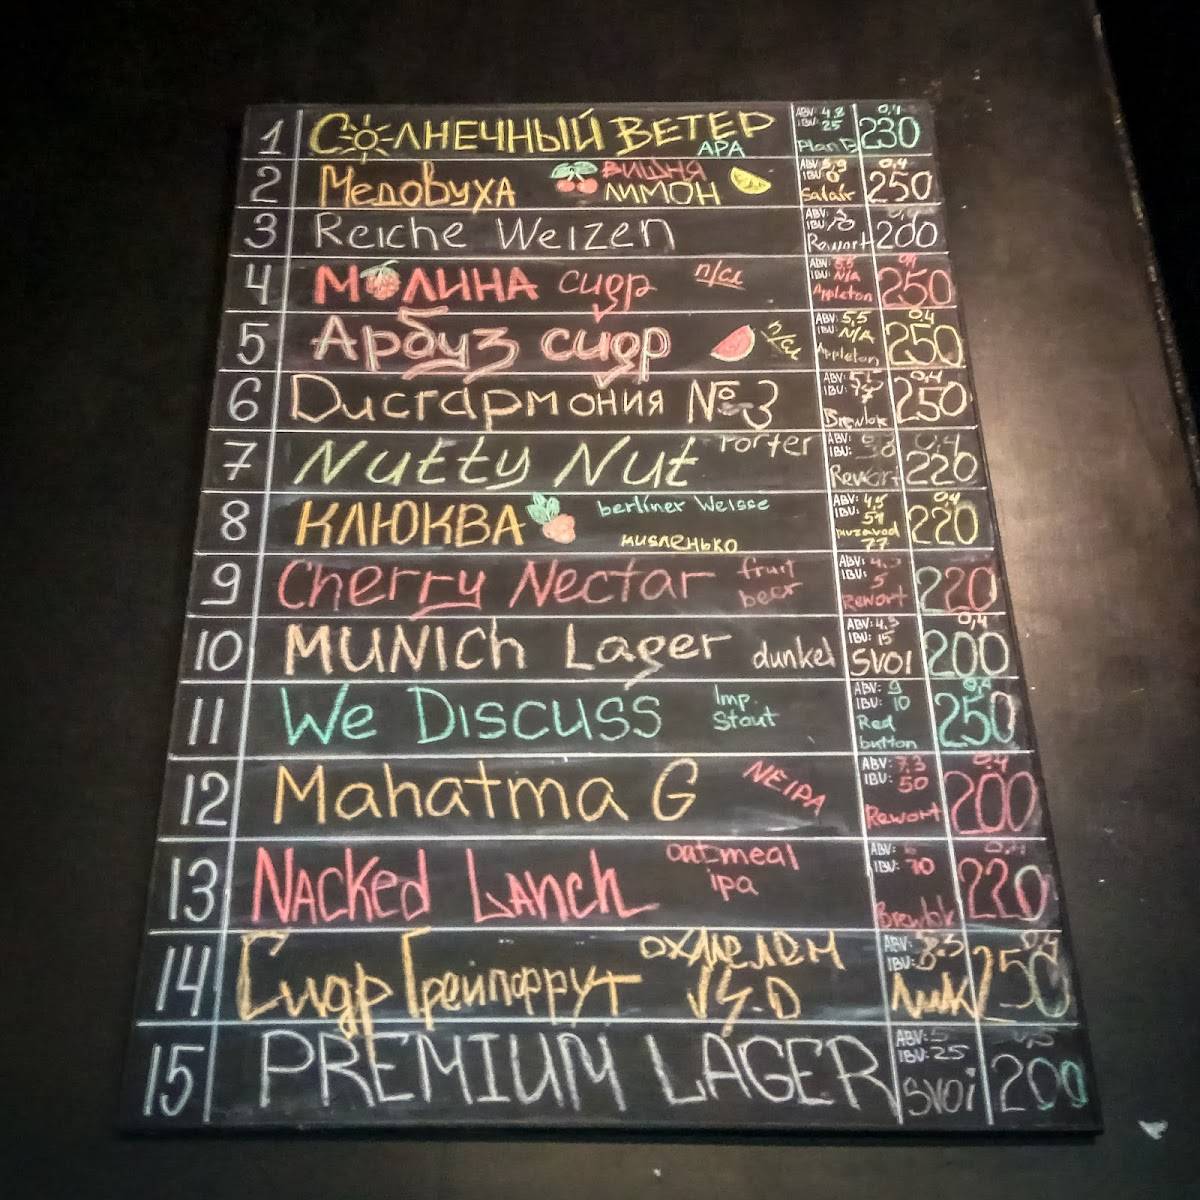 1 СОЛНЕЧНЫЙ ВЕТЕР APA ABV: 4,8 IBU: 25 Plan B 0,4 230
2 Медовуха ВИШНЯ ЛИМОН ABV: 5,9 IBU: 0 0,4 250
3 Reiche Weizen ABV: IBU: Rewort 0,4 200
4 МОЛИНА сидр п/сл ABV: 5,5 IBU: N/A Appleton 250
5 Арбуз сидр п/сл ABV: 5,5 IBU: N/A Appleton 0,4 250
6 Дисгармония №3 ABV: IBU: Brewlok 0,4 250
7 Nutty Nut Porter ABV: IBU: 30 Rewort 0,4 220
8 КЛЮКВА berliner Weisse кисленько ABV: 4,5 IBU: 77 0,4 220
9 Cherry Nectar fruit beer ABV: 4.5 IBU: 5 Rewort 220
10 MUNICh Lager dunkel ABV: 4.5 IBU: 15 SVOI 0,4 200
11 We Discuss Imp. Stout ABV: 9 IBU: 10 Red button 0,4 250
12 Mahatma G NEIPA ABV: 7,3 IBU: 50 Rewort 0,4 200
13 Nacked Lanch oatmeal ipa ABV: 6 IBU: 70 Brewlok 0,4 220
14 Сидр Грейпфрут охмелем ABV: IBU: 0,4 250
15 PREMIUM LAGER ABV: 5 IBU: 25 SVOi 0,5 200